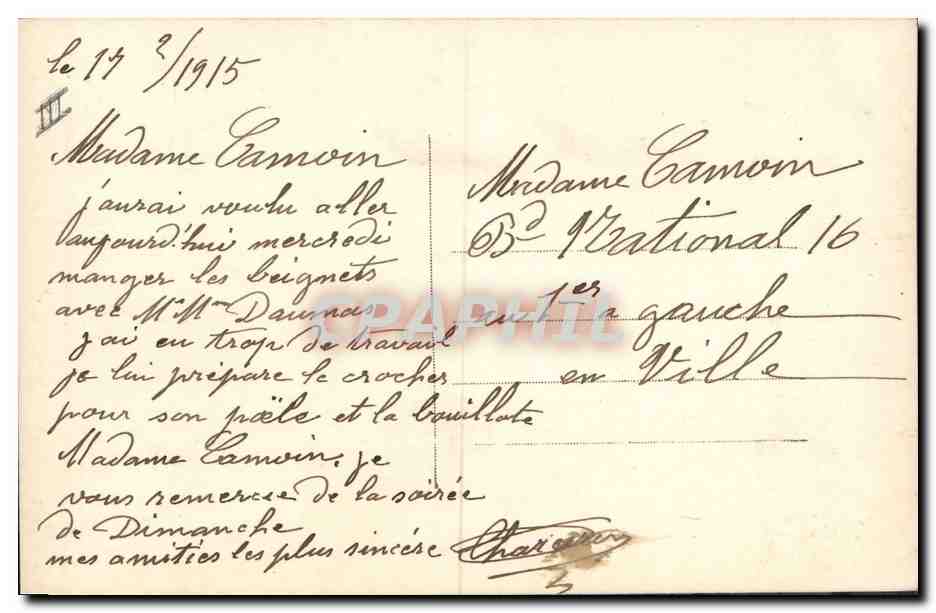 le 17 2/1915
III
Madame Camoin
j'aurai voulu aller
aujourd'hui mercredi
manger les beignets
avec Mr Mme Daumas
j'ai eu trop de travail
je lui prépare le crochet
pour son poële et la bouillote
Madame Camoin, je
vous remercie de la soirée
de Dimanche
mes amitiés les plus sincére
Madame Camoin
Bd National 16
au 1er a gauche
en Ville
CPAPHIL